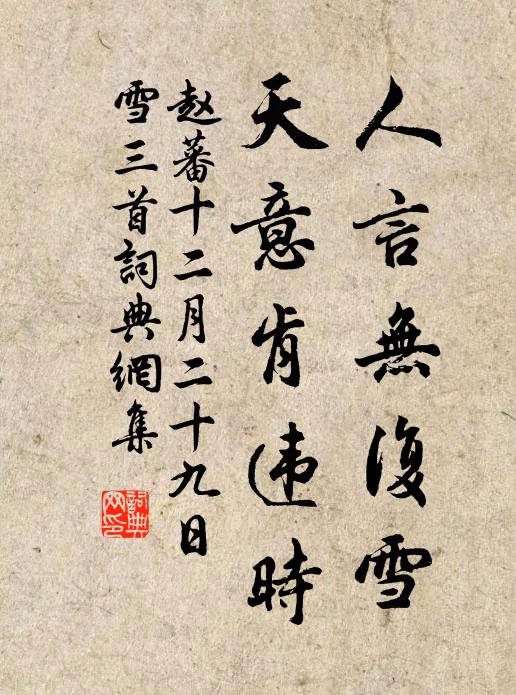 人言無復雪
天意肯违時
赵蕃十二月二十九日
雪三首詞典網集
詞典
网印